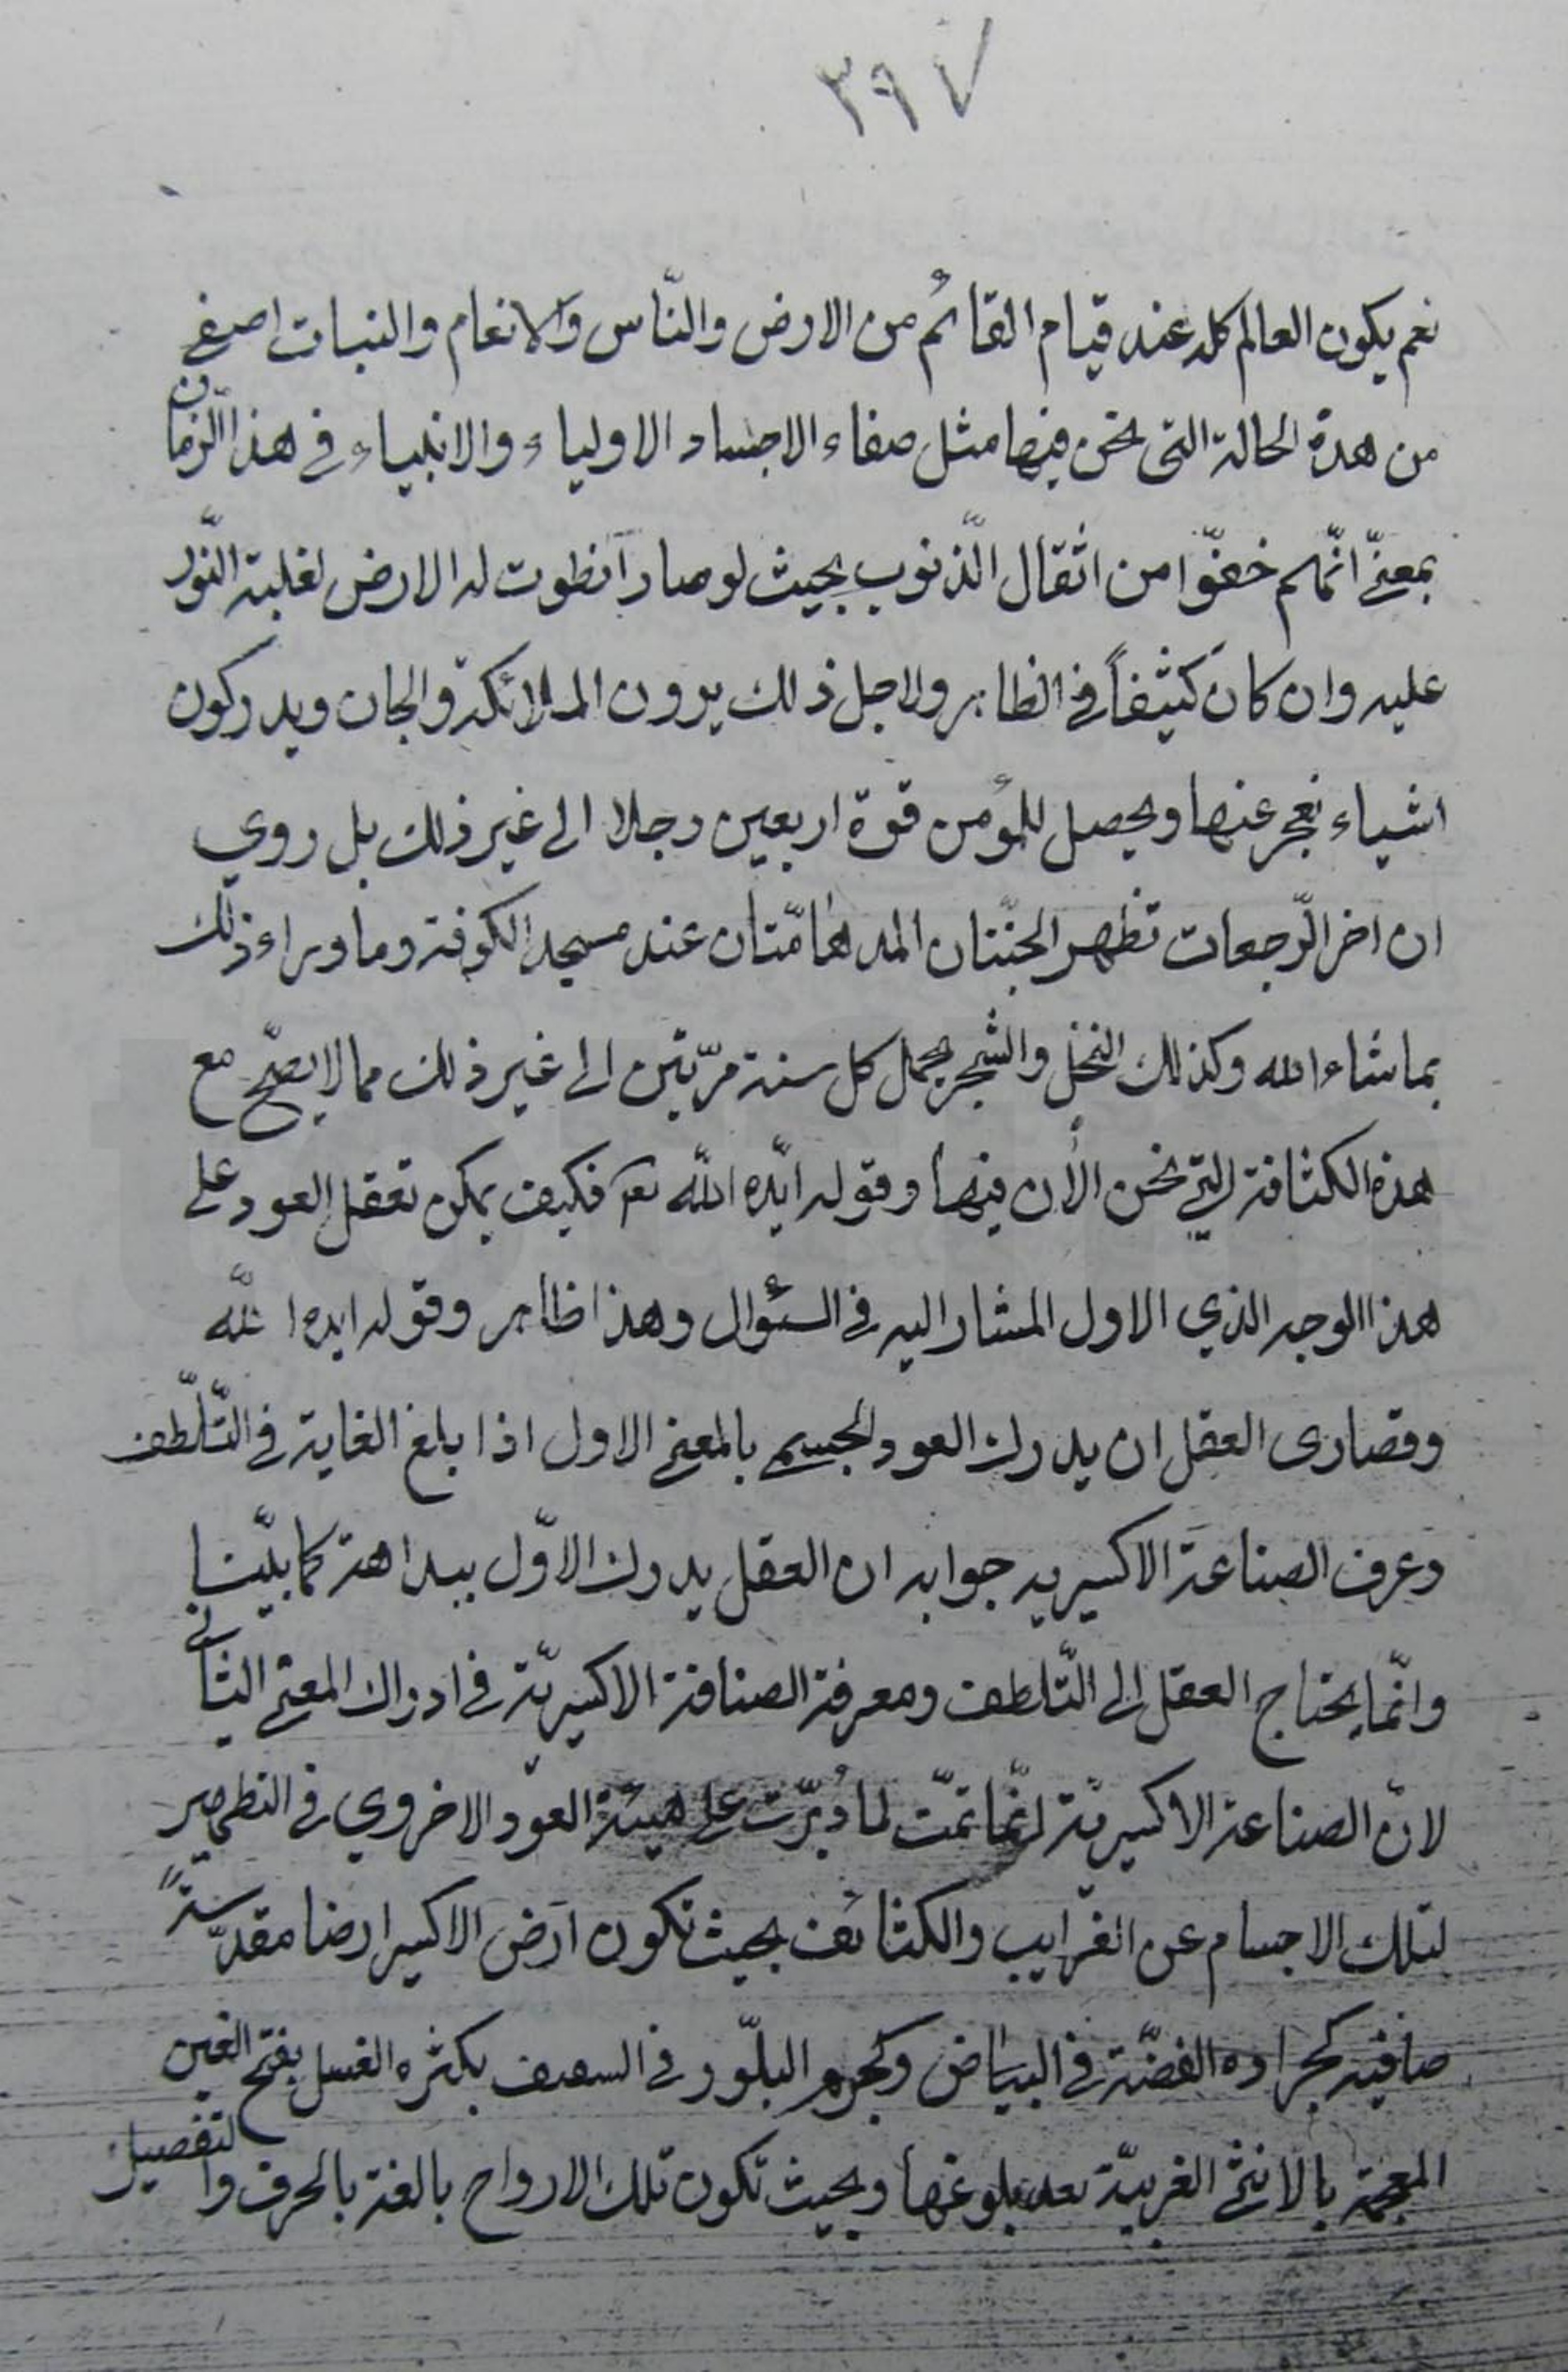 ٣٩٧
نعم يكون العالم كله عند قيام القائم من الارض والنّاس والانعام والنبات اصفى
من هذة الحالة التى نحن فيها مثل صفاء الاجساد الاولياء والانبياء فى هذا الزمان
بمعنى انّهم خفّوا من اثقال الذنوب بحيث لو صار انطوت له الارض لغلبة النّور
عليه وان كان كثيفاً فى الظاهر ولاجل ذلك يرون الملائكة والجان ويدركون
اشياء نعجز عنها ويحصل للمؤمن قوة اربعين رجلا الى غير ذلك بل روي
ان اخر الرّجعات تظهر الجنّتان المدهامّتان عند مسجد الكوفة وما وراء ذلك
بماشاء الله وكذلك النخل والشجر يحمل كل سنة مرّتين الى غير ذلك مما لا يصحّ مع
هذه الكثافة التي نحن الأن فيها وقوله ايّده اللّه تعـ فكيف يمكن تعقل العود على
هذا الوجه الذي الاول المشار اليه فى السئوال وهذا ظاهر وقوله ايده اللّه
وقصارى العقل ان يدرك العود الجسم بالمعنى الاول اذا بلغ الغاية فى التّلّطف
وعرف الصناعة الاكسيريه جوابه ان العقل يدرك الاوّل ببداهة كما بيّنا
وانّما يحتاج العقل الى التّلطف ومعرفة الصنافة الاكسيريّة فى ادراك المعنى الثانى
لانّ الصناعة الاكسيريّة انّما تمّت لما دبّرت على هيئة العود الاخروي فى التطهير
لتلك الاجسام عن الغرايب والكثائف بحيث تكون ارض الاكسير ارضا مقدّسةً
صافيه كجراده الفضّة فى البياض وكجرم البلّور فى بكثره الغسل بفتح الغين
المعجمة بالانثى الغريبّة بعد بلوغها وبحيث تكون تلك الارواح بالغة بالحرف والتفصيل